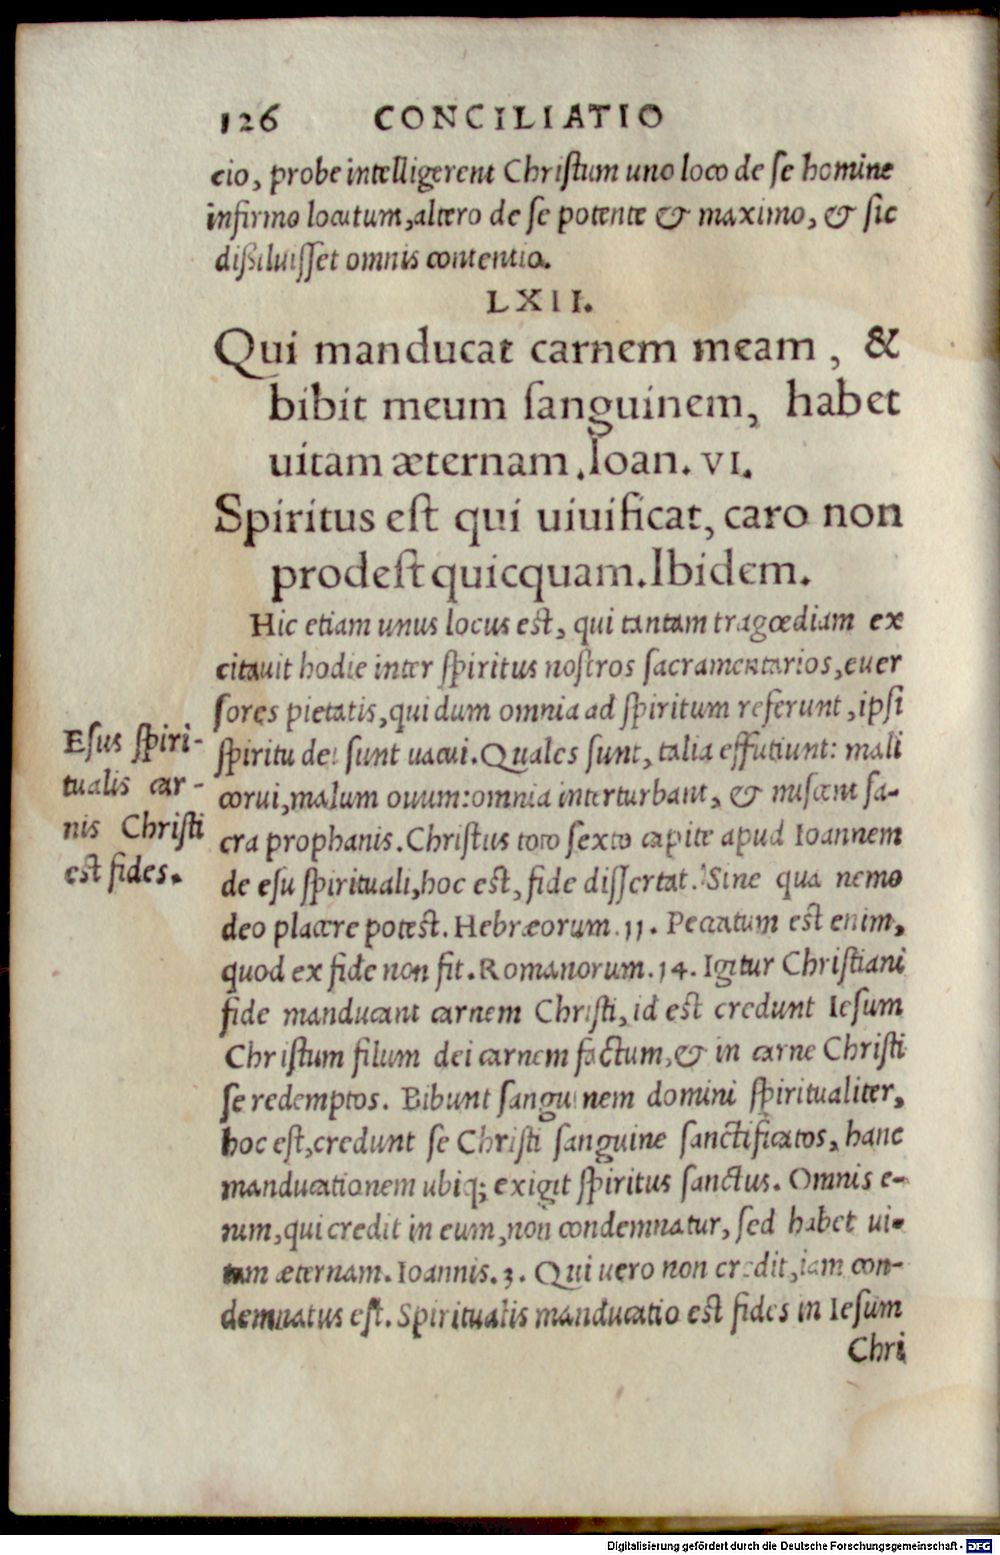 126 CONCILIATIO
cio, probe intelligerent Christum uno loco de se homine
infirmo locutum, altero de se potente & maximo, & sic
dissiluisset omnis contentio.
LXII.
Qui manducat carnem meam, &
bibit meum sanguinem, habet
uitam æternam. Ioan. VI.
Spiritus est qui uiuificat, caro non
prodest quicquam. Ibidem.
Hic etiam unus locus est, qui tantam tragœdiam ex
citauit hodie inter spiritus nostros sacramentarios, euer
sores pietatis, qui dum omnia ad spiritum referunt, ipsi
spiritu dei sunt uacui. Quales sunt, talia effutiunt: mali
corui, malum ouum: omnia interturbant, & miscent sa-
cra prophanis. Christus toto sexto capite apud Ioannem
de esu spirituali, hoc est, fide dissertat. Sine qua nemo
deo placere potest. Hebræorum. 11. Peccatum est enim,
quod ex fide non fit. Romanorum. 14. Igitur Christiani
fide manducant carnem Christi, id est credunt Iesum
Christum filum dei carnem factum, & in carne Christi
se redemptos. Bibunt sanguinem domini spiritualiter,
hoc est, credunt se Christi sanguine sanctificatos, hanc
manducationem ubiq; exigit spiritus sanctus. Omnis e-
nim, qui credit in eum, non condemnatur, sed habet ui-
tam æternam. Ioannis. 3. Qui uero non credit, iam con-
demnatus est. Spiritualis manducatio est fides in Iesum
Chri
Esus spiri-
tualis car-
nis Christi
est fides.
Digitalisierung gefördert durch die Deutsche Forschungsgemeinschaft - DFG